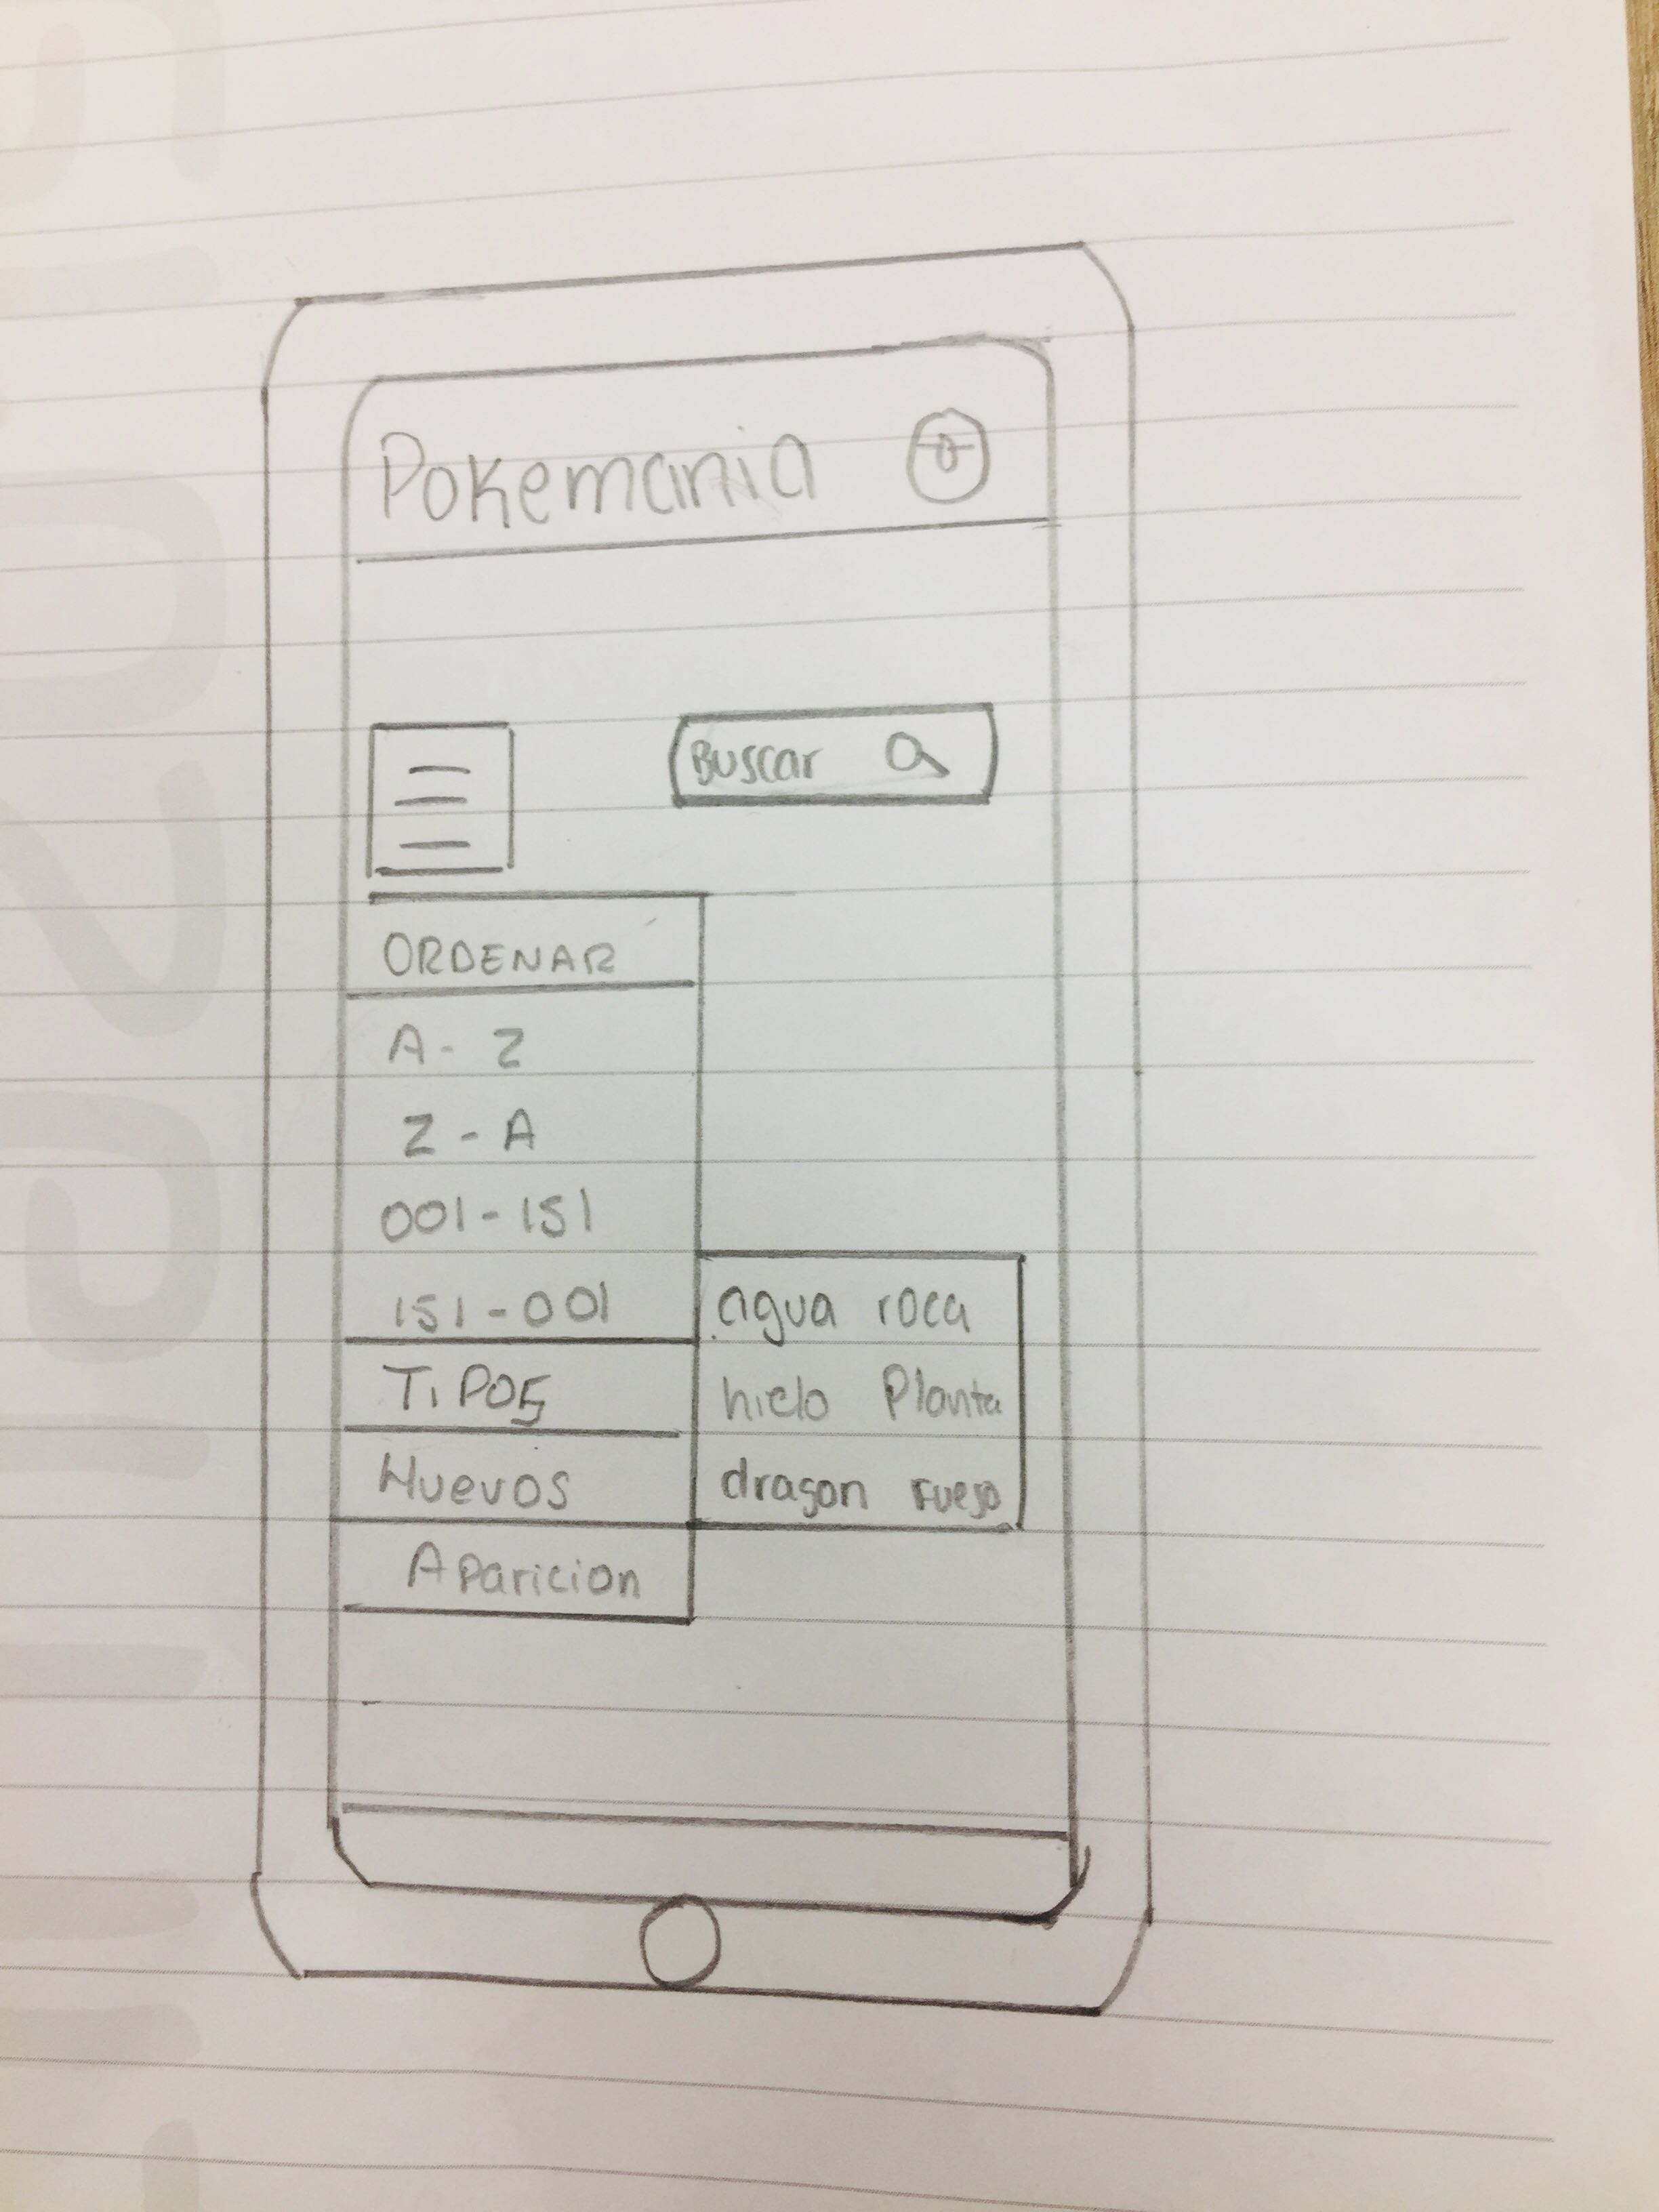 Pokemania
Buscar
ORDENAR
A - Z
Z - A
001 - 151
151 - 001
TiPOS
Huevos
Aparicion
agua roca
hielo Planta
dragon Fuego